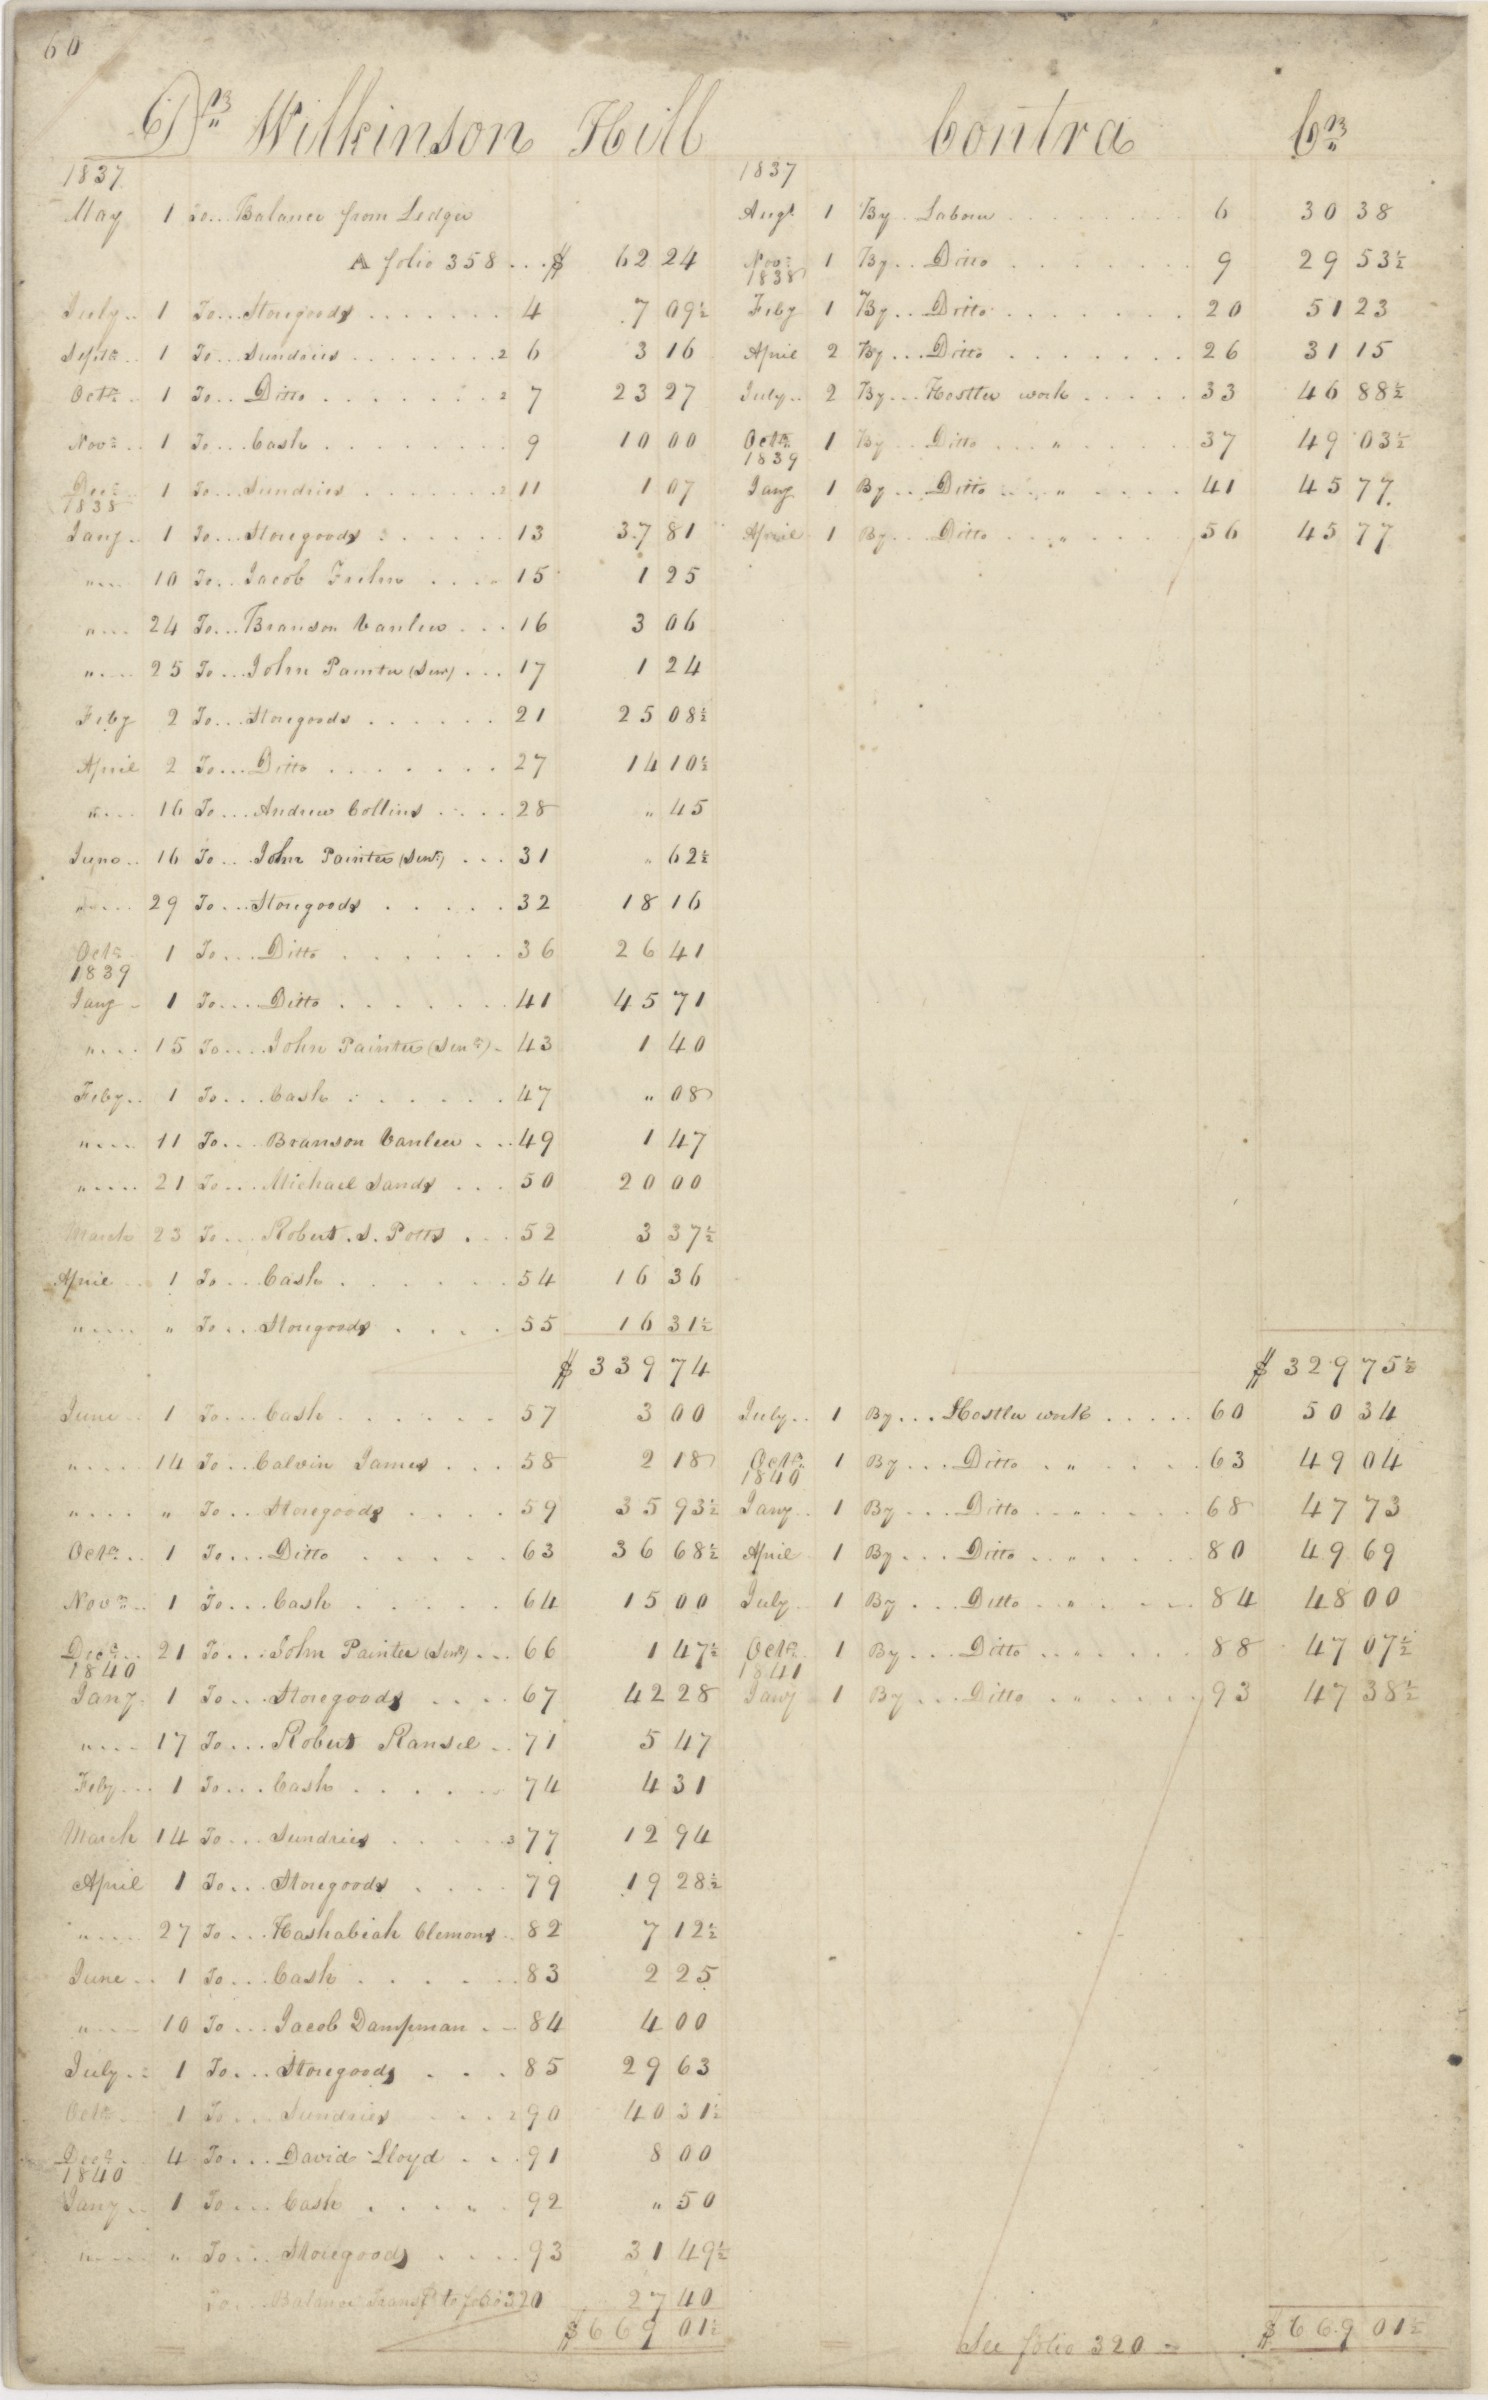 60
Dr Wilkinson Hill Contra Cr
1837 1837
May 1 To... Balance from Ledger Augt 1 By.. Labour 6 30 38
A folio 358 ... $ 62 24 Novr 1 By.. Ditto 9 29 53½
1838
July.. 1 To... Storegoods 4 7 09½ Feby 1 By.. Ditto 20 51 23
Septr.. 1 To... Sundries 2 6 3 16 April 2 By... Ditto 26 31 15
Octr. 1 To... Ditto 2 7 23 27 July.. 2 By... Hostler work 33 46 88½
Novr.. 1 To... Cash 9 10 00 Octr 1 By.. Ditto " 37 49 03½
1839
Decr 1 To... Sundries 2 11 1 07 Jany 1 By.. Ditto " 41 45 77
1838
Jany. 1 To... Storegoods 13 37 81 April 1 By... Ditto " 56 45 77
" 10 To... Jacob 15 1 25
" 24 To... Branson Vanlew 16 3 06
" 25 To... John Painter (Senr) 17 1 24
Feby 2 To... Storegoods 21 25 08½
April 2 To... Ditto 27 14 10½
" 16 To... Andrew Collins 28 " 45
June.. 16 To... John Painter (Senr) 31 " 62½
" 29 To... Storegoods 32 18 16
Octr 1 To... Ditto 36 26 41
1839
Jany 1 To... Ditto 41 45 71
" 15 To... John Painter (Senr) 43 1 40
Feby.. 1 To... Cash 47 " 08
" 11 To... Branson Vanlew 49 1 47
" 21 To... Michael Sands 50 20 00
March 23 To... Robert. S. Potts 52 3 37½
April 1 To... Cash 54 16 36
" " To... Storegoods 55 16 31½
$ 339 74 $ 329 75½
June.. 1 To... Cash 57 3 00 July.. 1 By... Hostler work 60 50 34
" 14 To... Calvin James 58 2 18 Octr. 1 By... Ditto " 63 49 04
1840
" " To... Storegoods 59 35 93½ Jany.. 1 By... Ditto " 68 47 73
Octr.. 1 To... Ditto 63 36 68½ April 1 By... Ditto " 80 49 69
Novr.. 1 To... Cash 64 15 00 July 1 By... Ditto " 84 48 00
Decr.. 21 To... John Painter (Senr) 66 1 47½ Octr. 1 By... Ditto " 88 47 07½
1840 1841
Jany. 1 To... Storegoods 67 42 28 Jany 1 By... Ditto " 93 47 38½
" 17 To... Robert Ransel 71 5 47
Feby 1 To... Cash 74 4 31
March 14 To... Sundries 3 77 12 94
April 1 To... Storegoods 79 19 28½
" 27 To... Hashabiah Clemons 82 7 12½
June.. 1 To... Cash 83 2 25
" 10 To... Jacob Dampman 84 4 00
July.. 1 To... Storegoods 85 29 63
Octr 1 To... Sundries 2 90 40 31½
Decr. 4 To... David Lloyd 91 8 00
1840
Jany.. 1 To... Cash 92 " 50
" " To... Storegoods 93 31 49½
To... Balance Transf't to folio 320 27 40
$ 669 01½ See folio 320 $ 669 01½